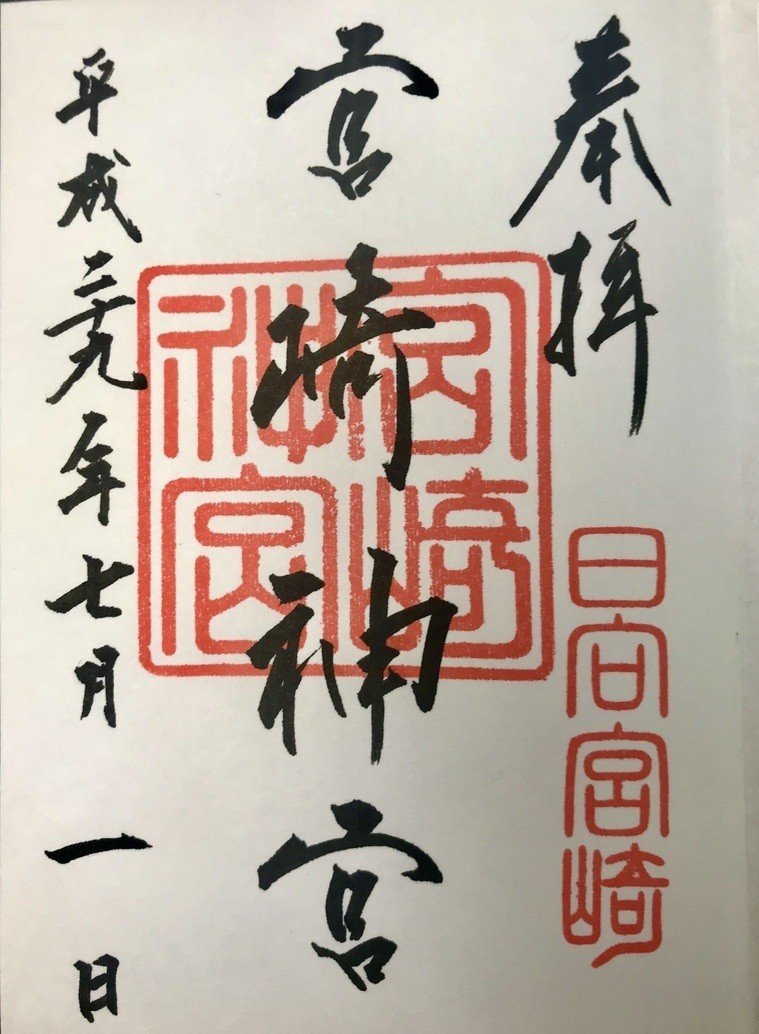 奉拝
日向宮崎
宮崎神宮
宮崎神宮
平成二十九年七月一日